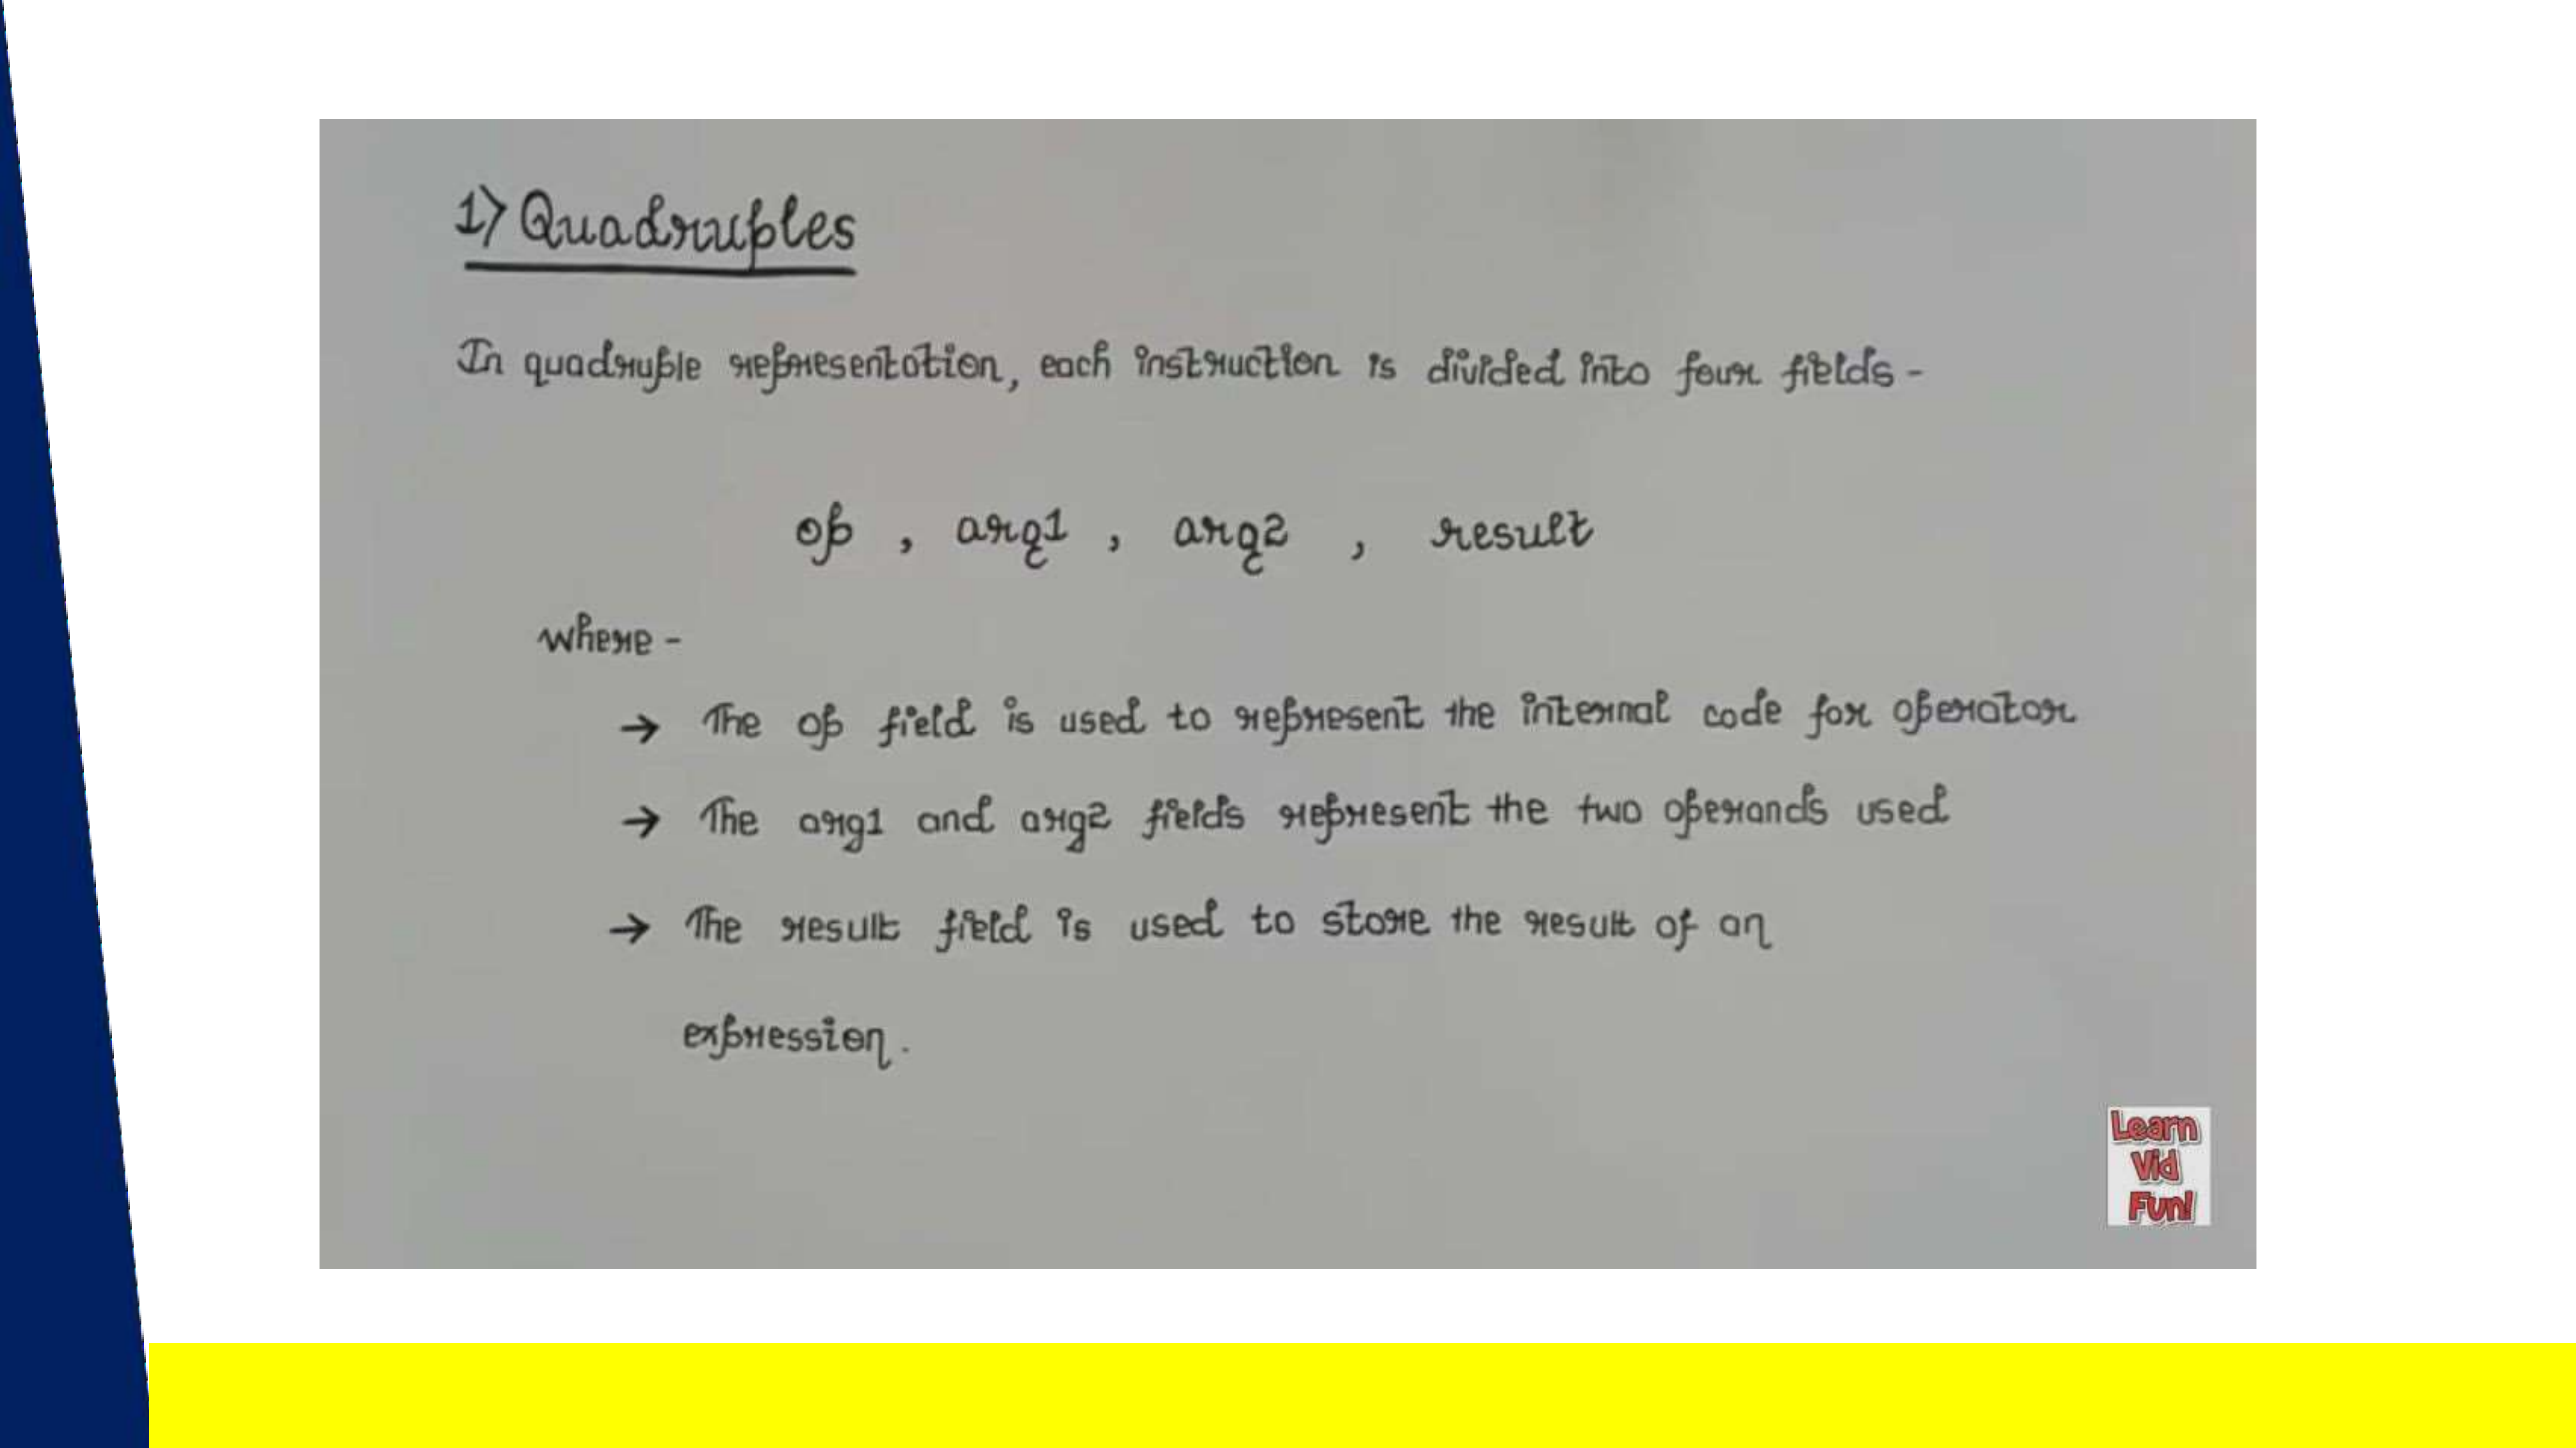 1) Quadruples
In quadruple representation, each instruction is divided into four fields -
op , arg1 , arg2 , result
where -
→ The op field is used to represent the internal code for operator
→ The arg1 and arg2 fields represent the two operands used
→ The result field is used to store the result of an
expression.
Learn
Vid
Fun!